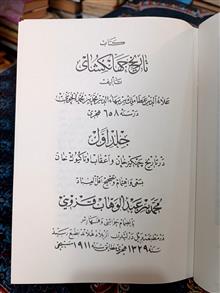 کتاب
تاریخ جهانگشای
تألیف
علاء الدین عطا ملک بن بهاء الدین محمد بن محمد الجوینی
در سنهٔ ۶۵۸ هجری
جلد اول
در تاریخ چنگیز خان و اعقاب او تا کیوک خان
بسعی و اهتمام و تصحیح اقل العباد
محمد بن عبد الوهاب قزوینی
در مطبعهٔ بریل در لیدن از بلاد هلاند بطبع رسید
سنه ۱۳۲۹ هجری مطابق سنه ۱۹۱۱ مسیحی